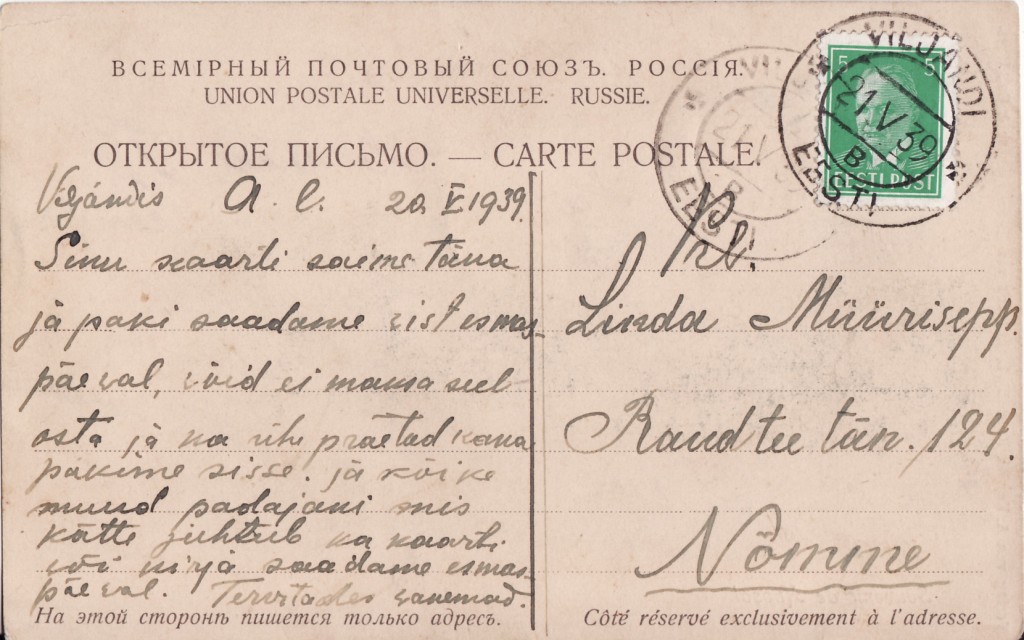 ВСЕМІРНЫЙ ПОЧТОВЫЙ СОЮЗЪ. РОССІЯ.
UNION POSTALE UNIVERSELLE. RUSSIE.
ОТКРЫТОЕ ПИСЬМО. — CARTE POSTALE.
5 5
EESTI POST
VILJANDI
21.V 39
B
EESTI
VILJANDI
21.V 39
B
EESTI
Viljandis A. l. 20. V 1939.
Sinu kaarti saime täna
ja paki saadame vist esmas-
päeval, võid ei mama veel
osta ja ka ühe praetad kana
pakime sisse. ja kõike
muud padajani mis
kätte juhtub ka kaarti
või kirja saadame esmas-
päeval. Tervitades vanemad.
На этой сторонѣ пишется только адресъ.
Prl.
Linda Müürisepp.
Raudtee tän. 124.
Nõmme
Côté réservé exclusivement à l'adresse.